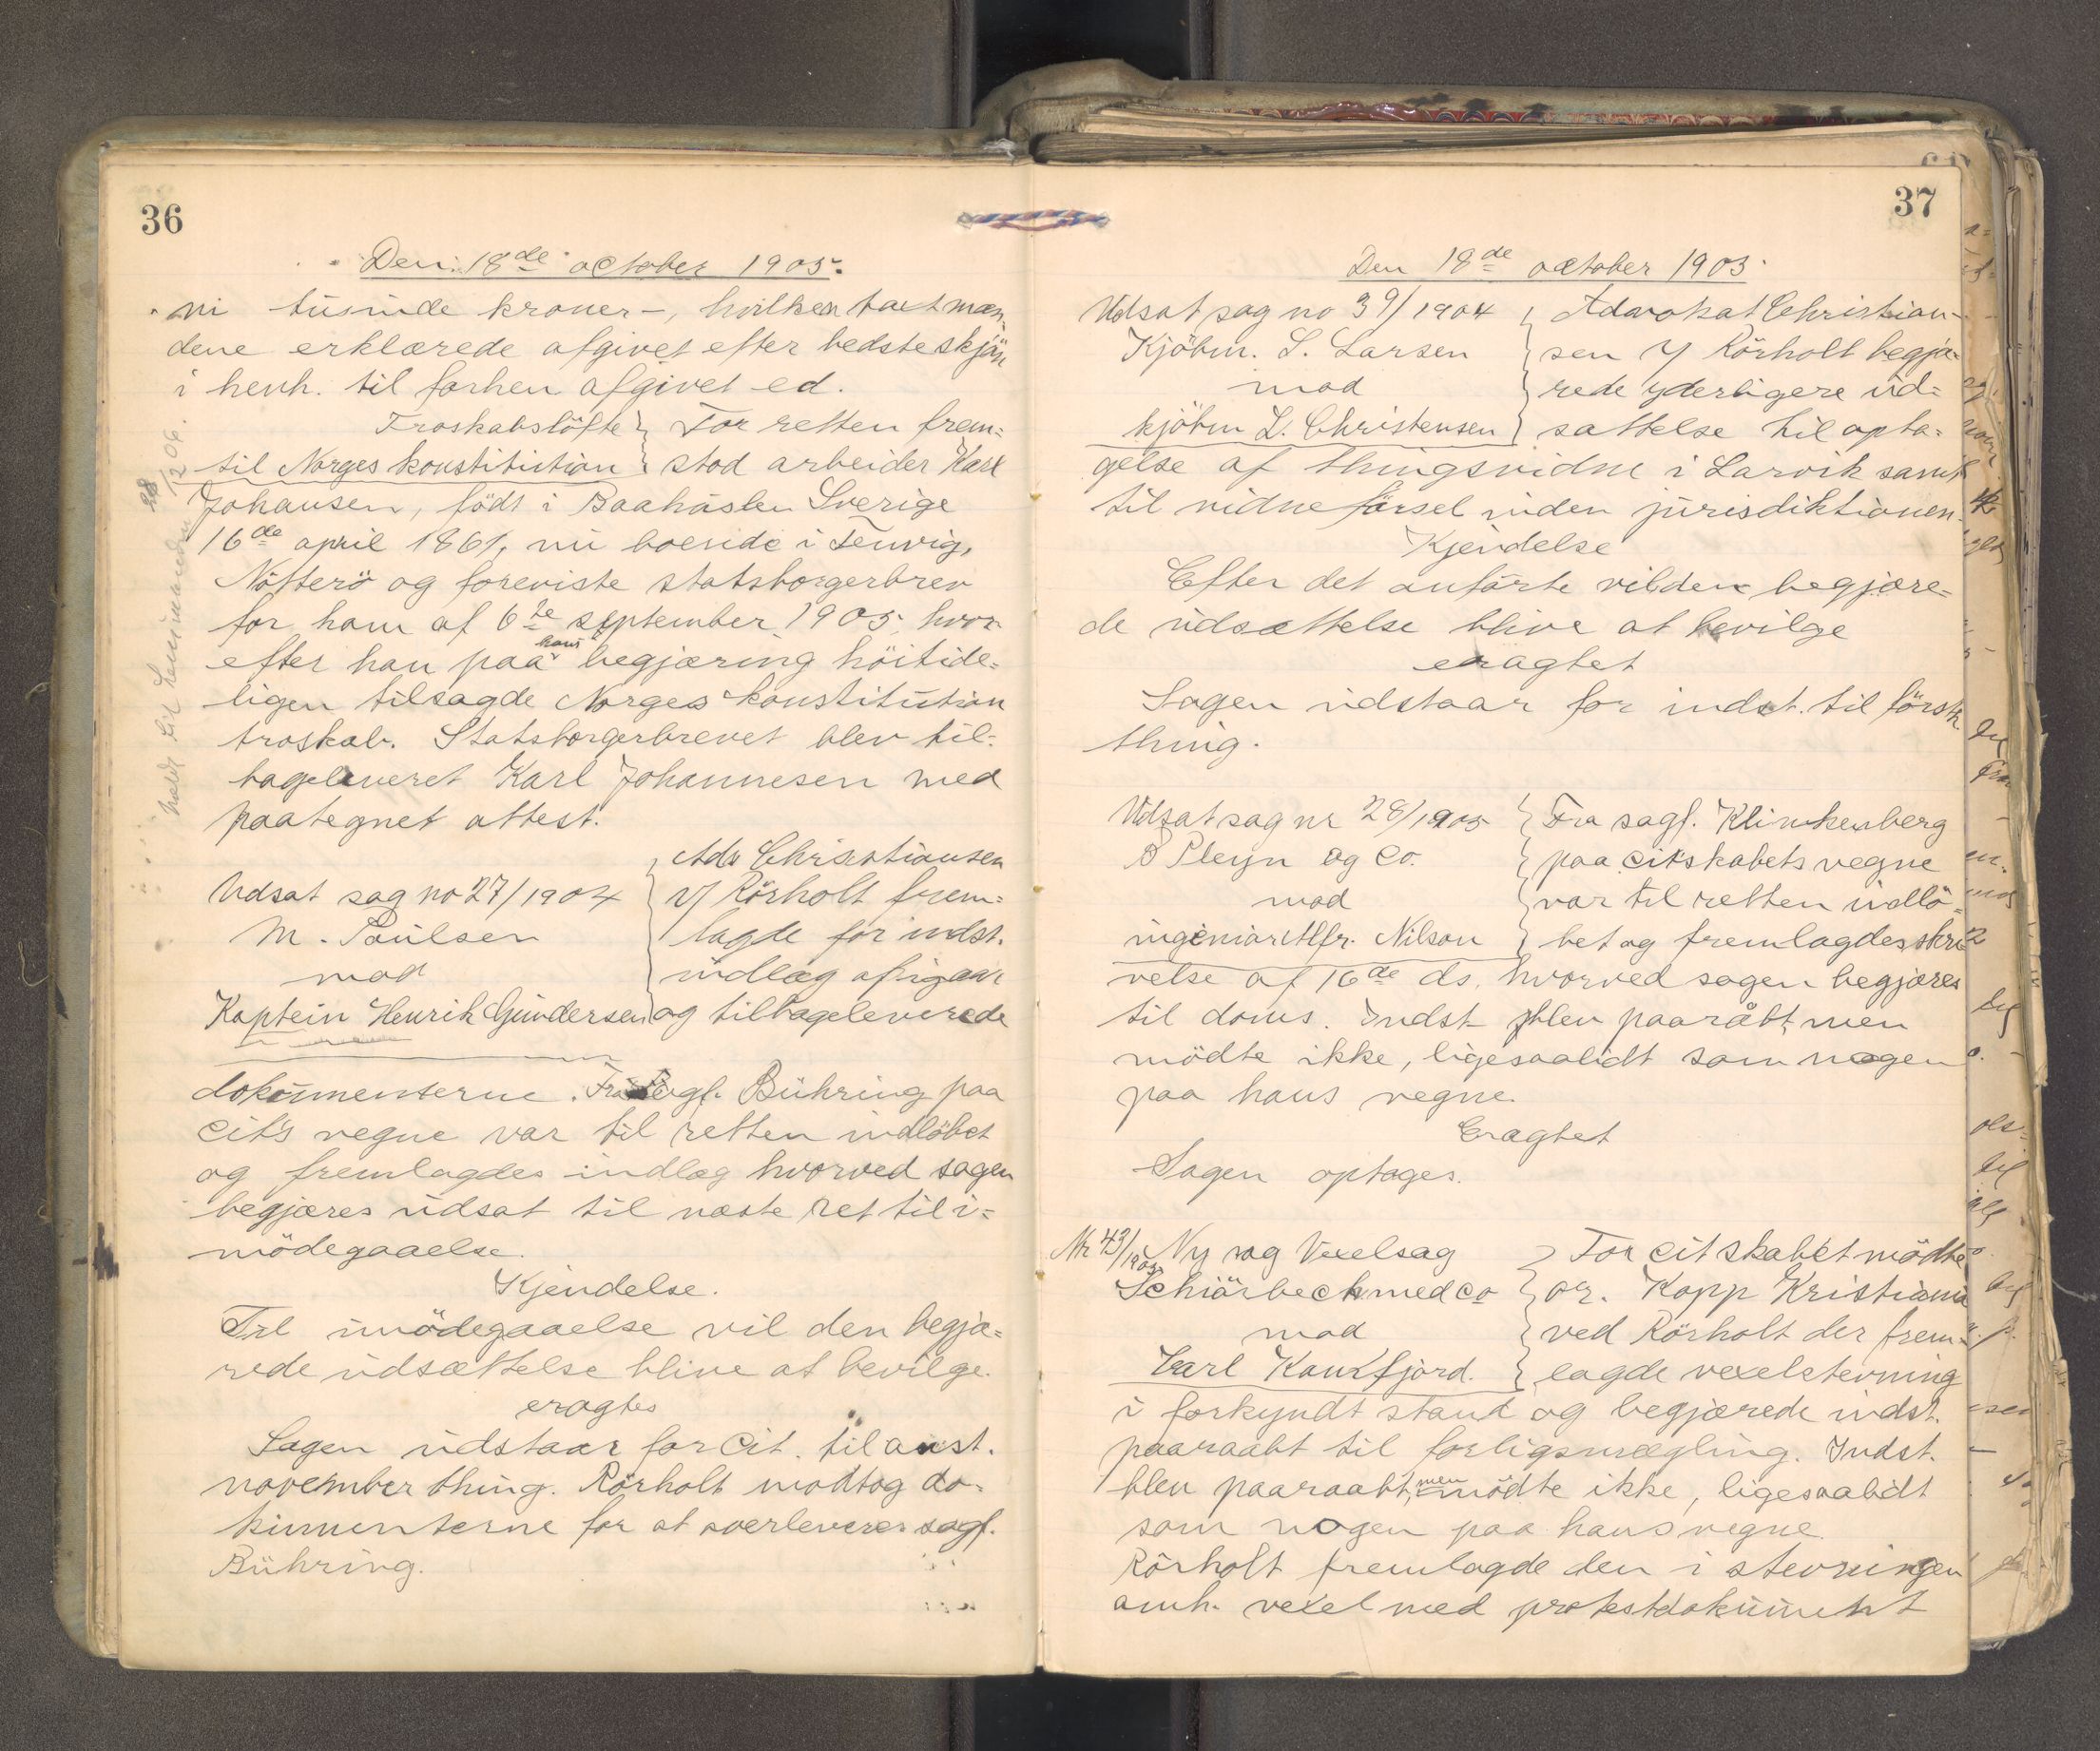 36
Den 18de october 1905.
ni tusinde kroner -, hvilken taxt mæn-
dene erklærede afgivet efter bedste skjön
i henh. til forhen afgivet ed.
Troskabslöfte } For retten frem-
til Norges konstitution } stod arbeider Karl
Johansen, födt i Baahuslen Sverige
16de april 1861, nu boende i Tenvig,
Nötterö og foreviste statsborgerbrev
for ham af 6te september 1905, hvor-
efter han paa hans begjæring höitide-
ligen tilsagde Norges konstitution
troskab. Statsborgerbrevet blev til-
bageleveret Karl Johannesen med
paategnet attest.
Udsat sag no 27/1904
M. Paulsen
mod
Kaptein Henrik Gundersen
Adv Christiansen
v/ Rörholt frem-
lagde for indst.
indlæg
og tilbageleverede
dokumenterne. Fra sagf. Bühring paa
cit's vegne var til retten indlöbet
og fremlagdes indlæg hvorved sagen
begjæres udsat til næste ret til i-
mödegaaelse.
Kjendelse.
Til imödegaaelse vil den begjæ-
rede udsættelse blive at bevilge.
eragtes
Sagen udstaar for cit. til anst.
november thing. Rörholt modtog do-
kumenterne for at overleverer sagf.
Bühring.
37
Den 18de october 1905.
Udsat sag no 39/1904
Kjöbm. S. Larsen
mod
kjöbm L. Christensen
Advokat Christian-
sen v/ Rörholt begjæ-
rede yderligere ud-
sættelse til opta-
gelse af thingsvidne i Larvik samt
til vidneförsel inden jurisdiktionen.
Kjendelse
Efter det anförte vil den begjære-
de udsættelse blive at bevilge
eragtet
Sagen udstaar for indst. til förste
thing.
Udsat sag nr 28/1905
B Pleyn og Co.
mod
ingeniör Alfr. Nilson
Fra sagf. Klinkenberg
paa citskabets vegne
var til retten indlö-
bet og fremlagdes skri-
velse af 16de ds. hvorved sagen begjæres
til doms. Indst blev paaråbt men
mödte ikke, ligesaalidt som nogen
paa hans vegne.
Eragtet
Sagen optages.
Nr 43/1905 Ny sag Vexelsag
Schiärbeck med co
mod
Carl Kauffjord.
For citskabet mödte
or. Kopp Kristiania
ved Rörholt der frem-
lagde vexelstevning
i forkyndt stand og begjærede indst.
paaraabt til forligsmægling. Indst.
blev paaraabt, men mödte ikke, ligesaalidt
som nogen paa hans vegne.
Rörholt fremlagde den i stevningen
omh. vexel med protestdokument